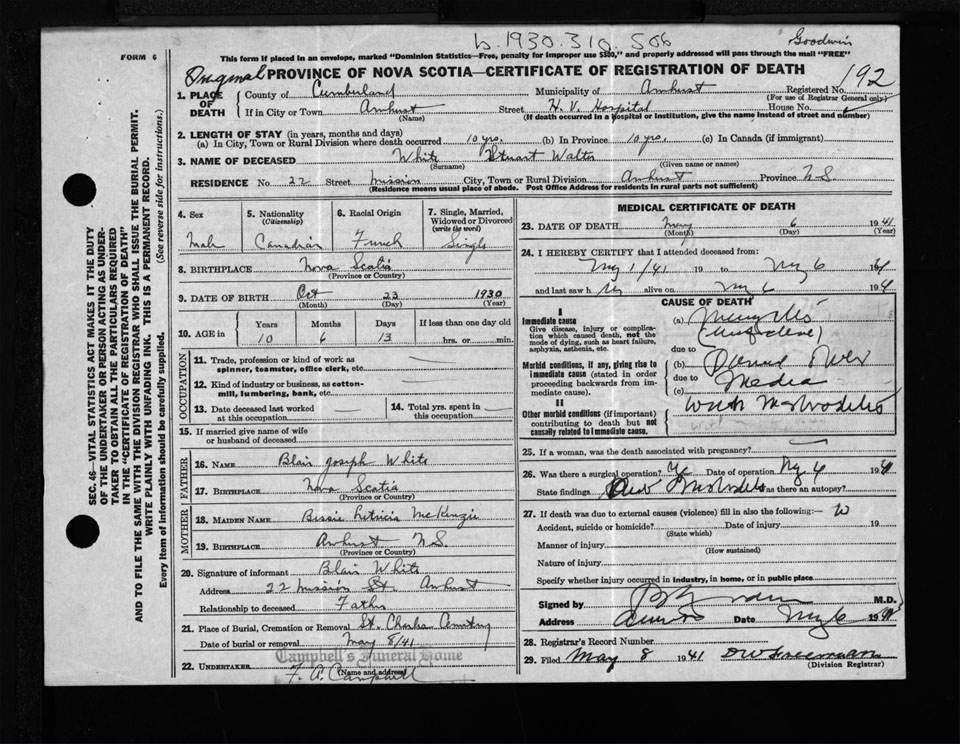 b. 1930. 310 506
Goodwin
FORM 6
This form if placed in an envelope, marked "Dominion Statistics—Free, penalty for improper use $300," and properly addressed will pass through the mail "FREE"
Original PROVINCE OF NOVA SCOTIA—CERTIFICATE OF REGISTRATION OF DEATH 192
1. PLACE OF DEATH
County of Cumberland Municipality of Amherst Registered No.
(For use of Registrar General only)
If in City or Town Amherst Street H. V. Hospital House No.
(Name) (If death occurred in a hospital or institution, give the name instead of street and number)
2. LENGTH OF STAY (in years, months and days)
(a) In City, Town or Rural Division where death occurred 10 yrs. (b) In Province 10 yrs. (c) In Canada (if immigrant)
3. NAME OF DECEASED White Stuart Walter
(Surname) (Given name or names)
RESIDENCE No 22 Street Mission City, Town or Rural Division Amherst Province N.S.
(Residence means usual place of abode. Post Office Address for residents in rural parts not sufficient)
4. Sex
Male
5. Nationality (Citizenship)
Canadian
6. Racial Origin
French
7. Single, Married, Widowed or Divorced (write the word)
Single
8. BIRTHPLACE Nova Scotia
(Province or Country)
9. DATE OF BIRTH Oct 23 1930
(Month) (Day) (Year)
10. AGE in
Years Months Days If less than one day old
10 6 13 hrs. or min.
OCCUPATION
11. Trade, profession or kind of work as spinner, teamster, office clerk, etc.
12. Kind of industry or business, as cotton-mill, lumbering, bank, etc.
13. Date deceased last worked at this occupation
14. Total yrs. spent in this occupation
15. If married give name of wife or husband of deceased
FATHER
16. NAME Blair Joseph White
17. BIRTHPLACE Nova Scotia
(Province or Country)
MOTHER
18. MAIDEN NAME Bessie McKenzie
19. BIRTHPLACE Amherst N.S.
(Province or Country)
20. Signature of informant Blair White
Address 22 Mission St. Amherst
Relationship to deceased Father
21. Place of Burial, Cremation or Removal St. Charles Cemetery
Date of burial or removal May 8/41
Campbell's Funeral Home
22. UNDERTAKER F. A. Campbell
(Name and address)
MEDICAL CERTIFICATE OF DEATH
23. DATE OF DEATH May 6 1941
(Month) (Day) (Year)
24. I HEREBY CERTIFY that I attended deceased from:
My 1/41 19 to My 6 19
and last saw h alive on My 6 194
CAUSE OF DEATH
I
Immediate cause
Give disease, injury or complication which caused death, not the mode of dying, such as heart failure, asphyxia, asthenia, etc.
(a)
due to
Morbid conditions, if any, giving rise to immediate cause (stated in order proceeding backwards from immediate cause).
(b)
due to
(c) Media
II
Other morbid conditions (if important) contributing to death but not causally related to immediate cause.
with
25. If a woman, was the death associated with pregnancy?
26. Was there a surgical operation? Date of operation My 4 19
State findings Was there an autopsy?
27. If death was due to external causes (violence) fill in also the following:—
Accident, suicide or homicide? Date of injury 19
(State which)
Manner of injury
(How sustained)
Nature of injury
Specify whether injury occurred in industry, in home, or in public place
Signed by M.D.
Address Date My 6 19
28. Registrar's Record Number
29. Filed May 8 1941
(Division Registrar)
SEC. 46—VITAL STATISTICS ACT MAKES IT THE DUTY
OF THE UNDERTAKER OR PERSON ACTING AS UNDER-
TAKER TO OBTAIN ALL THE PARTICULARS REQUIRED
IN THE "CERTIFICATE OF REGISTRATION OF DEATH"
AND TO FILE THE SAME WITH THE DIVISION REGISTRAR WHO SHALL ISSUE THE BURIAL PERMIT.
WRITE PLAINLY WITH UNFADING INK. THIS IS A PERMANENT RECORD.
Every item of information should be carefully supplied. (See reverse side for instructions.)